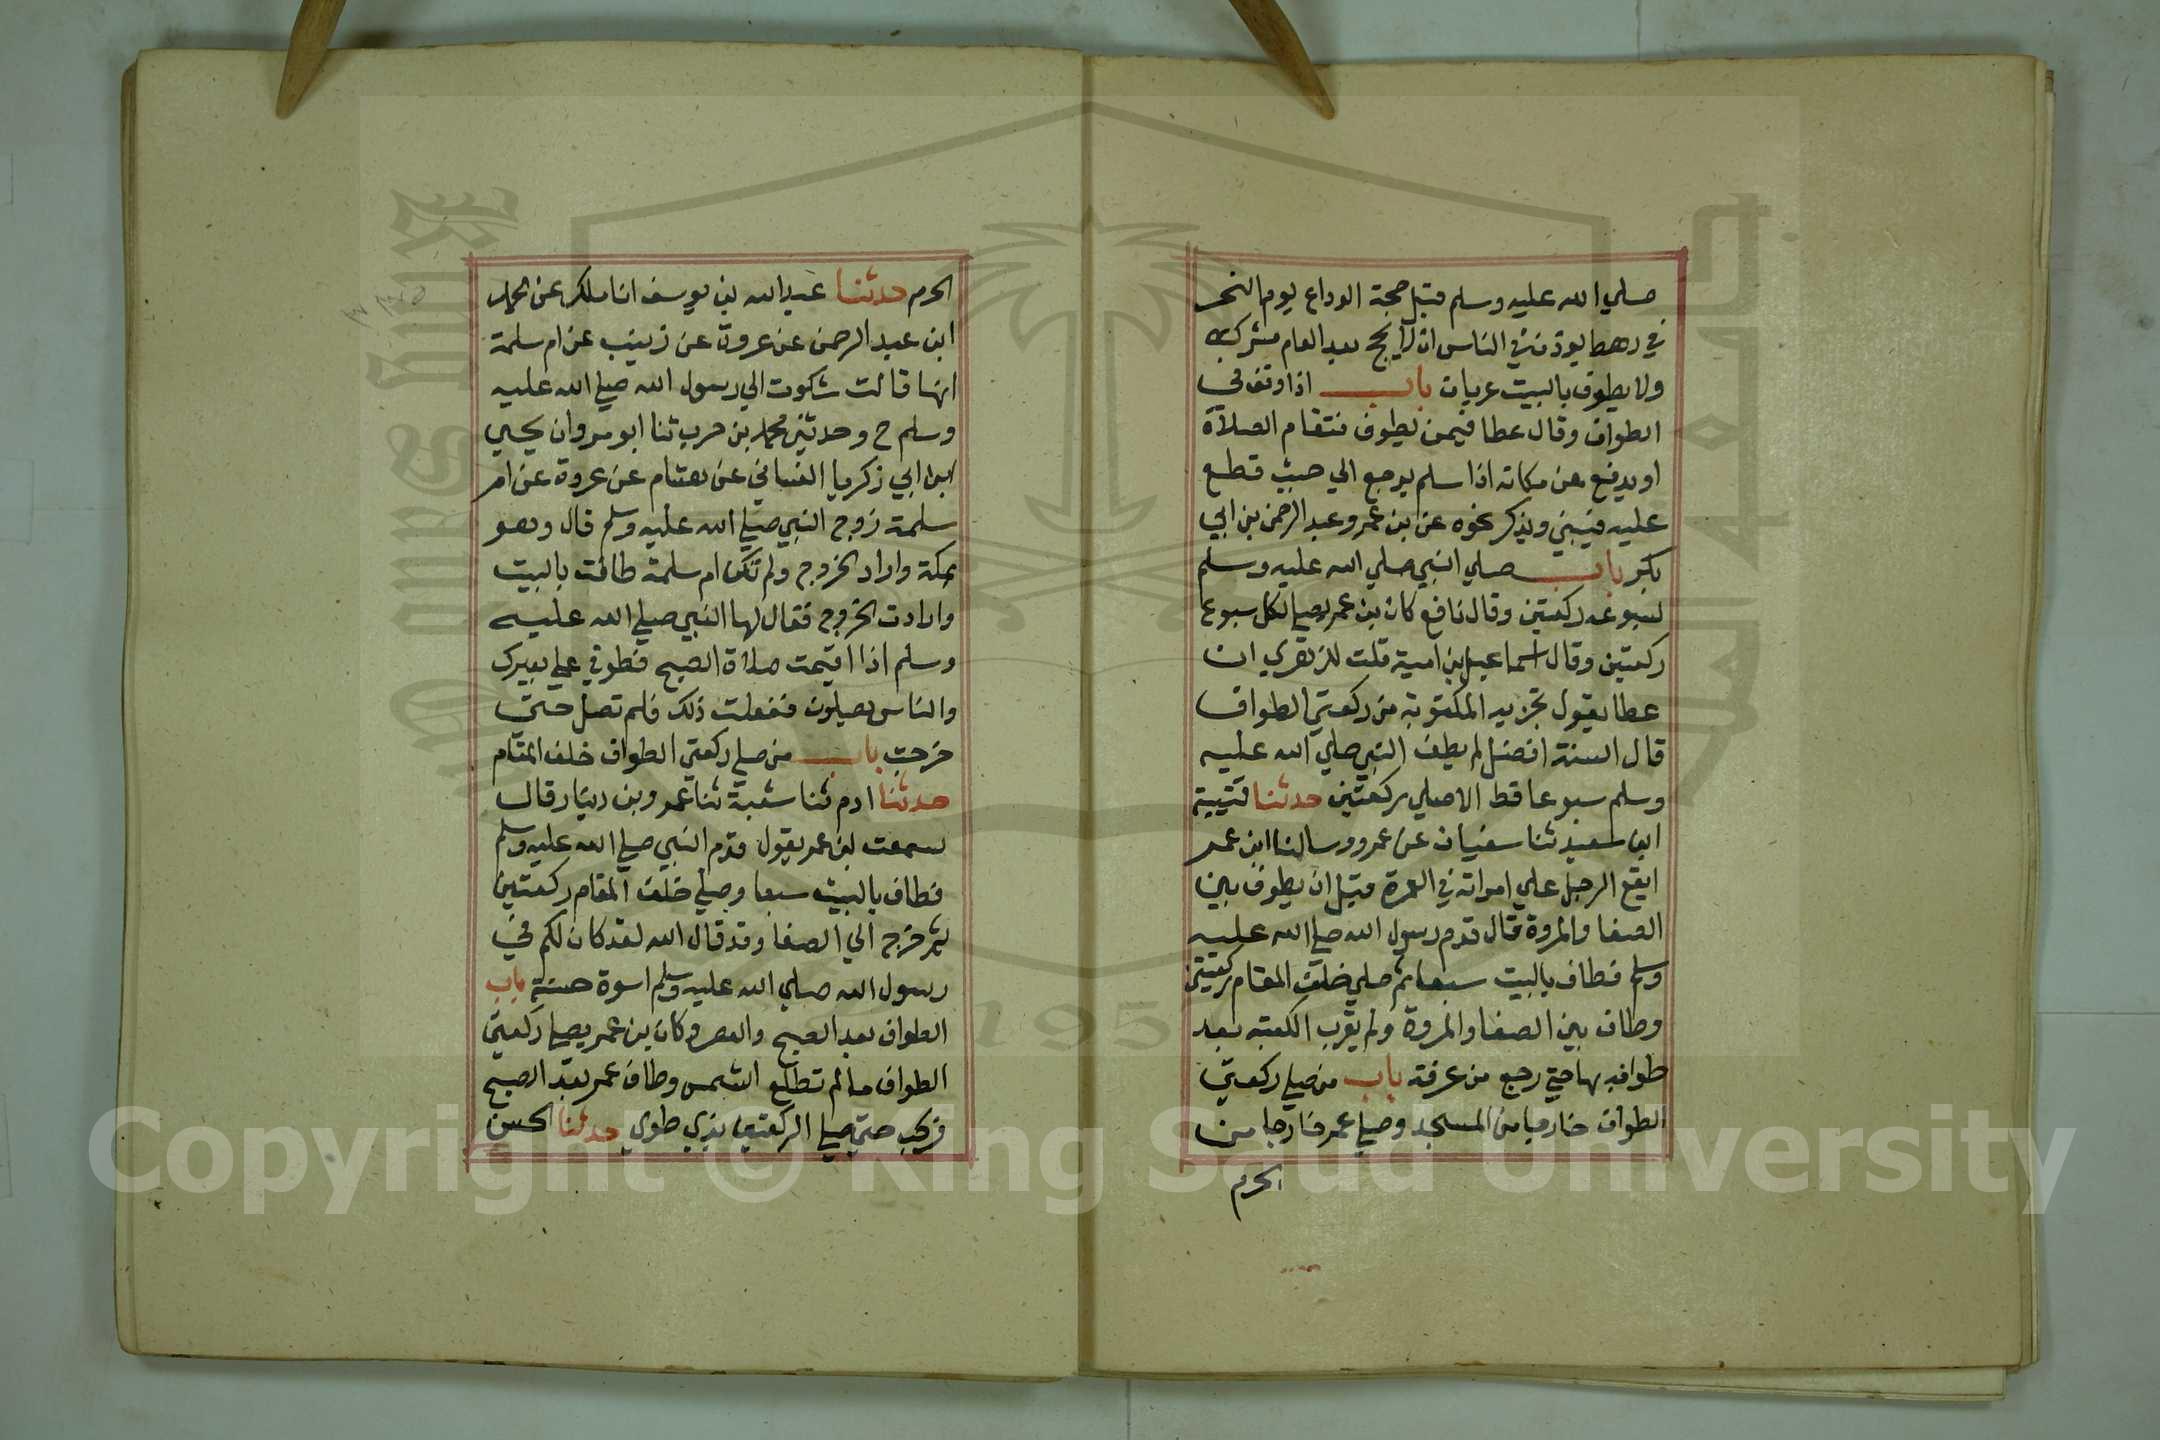 صلي الله عليه وسلم قبل حجة الوداع يوم النحر
في رهط يوذن في الناس ان لا يحج بعد العام مشرك
ولا يطوف بالبيت عريان باب اذا وقف في
الطواف وقال عطا فيمن يطوف فتقام الصلاة
او يدفع عن مكانه اذا سلم يرجع الي حيث قطع
عليه فيبني ويذكر نحوه عن بن عمر وعبد الرحمن بن ابي
بكر باب صلي النبي صلي الله عليه وسلم
لسبوعه ركعتين وقال نافع كان بن عمر يصلي لكل سبوع
ركعتين وقال اسماعيل بن امية قلت للزهري ان
عطا يقول تجزيه المكتوبة من ركعتي الطواف
قال السنة افضل لم يطف النبي صلي الله عليه
وسلم سبوعا قط الا صلي ركعتين حدثنا قتيبة
ابن سعيد ثنا سفيان عن عمرو وسالنا ابن عمر
ايقع الرجل علي امراته في العمرة قبل ان يطوف بين
الصفا والمروة قال قدم رسول الله صلي الله عليه
وسلم فطاف بالبيت سبعا ثم صلي خلف المقام ركعتين
وطاف بين الصفا والمروة ولم يقرب الكعبة بعد
طوافه بها حتي رجع من عرفة باب من صلي ركعتي
الطواف خارجا من المسجد وصلي عمر خارجا من
الحرم
الحرم حدثنا عبد الله بن يوسف انا ملك عن محمد
ابن عبد الرحمن عن عروة عن زينب عن ام سلمة
انها قالت شكوت الي رسول الله صلي الله عليه
وسلم ح وحدثني محمد بن حرب ثنا ابو مروان يحيي
ابن ابي زكريا الغساني عن هشام عن عروة عن ام
سلمة زوج النبي صلي الله عليه وسلم قال وهو
بمكة واراد الخروج ولم تكن ام سلمة طافت بالبيت
وارادت الخروج فقال لها النبي صلي الله عليه
وسلم اذا اقيمت صلاة الصبح فطوفي علي بعيرك
والناس يصلون ففعلت ذلك فلم تصل حتي
خرجت باب من صلي ركعتي الطواف خلف المقام
حدثنا ادم ثنا شعبة ثنا عمرو بن دينار قال
سمعت بن عمر يقول قدم النبي صلي الله عليه وسلم
فطاف بالبيت سبعا وصلي خلف المقام ركعتين
ثم خرج الي الصفا وقد قال الله لقد كان لكم في
رسول الله صلي الله عليه وسلم اسوة حسنة باب
الطواف بعد الصبح والعصر وكان بن عمر يصلي ركعتي
الطواف ما لم تطلع الشمس وطاف عمر بعد الصبح
فركب حتي صلي الركعتين بذي طوي حدثنا الحسن
Copyright © King Saud University
1957